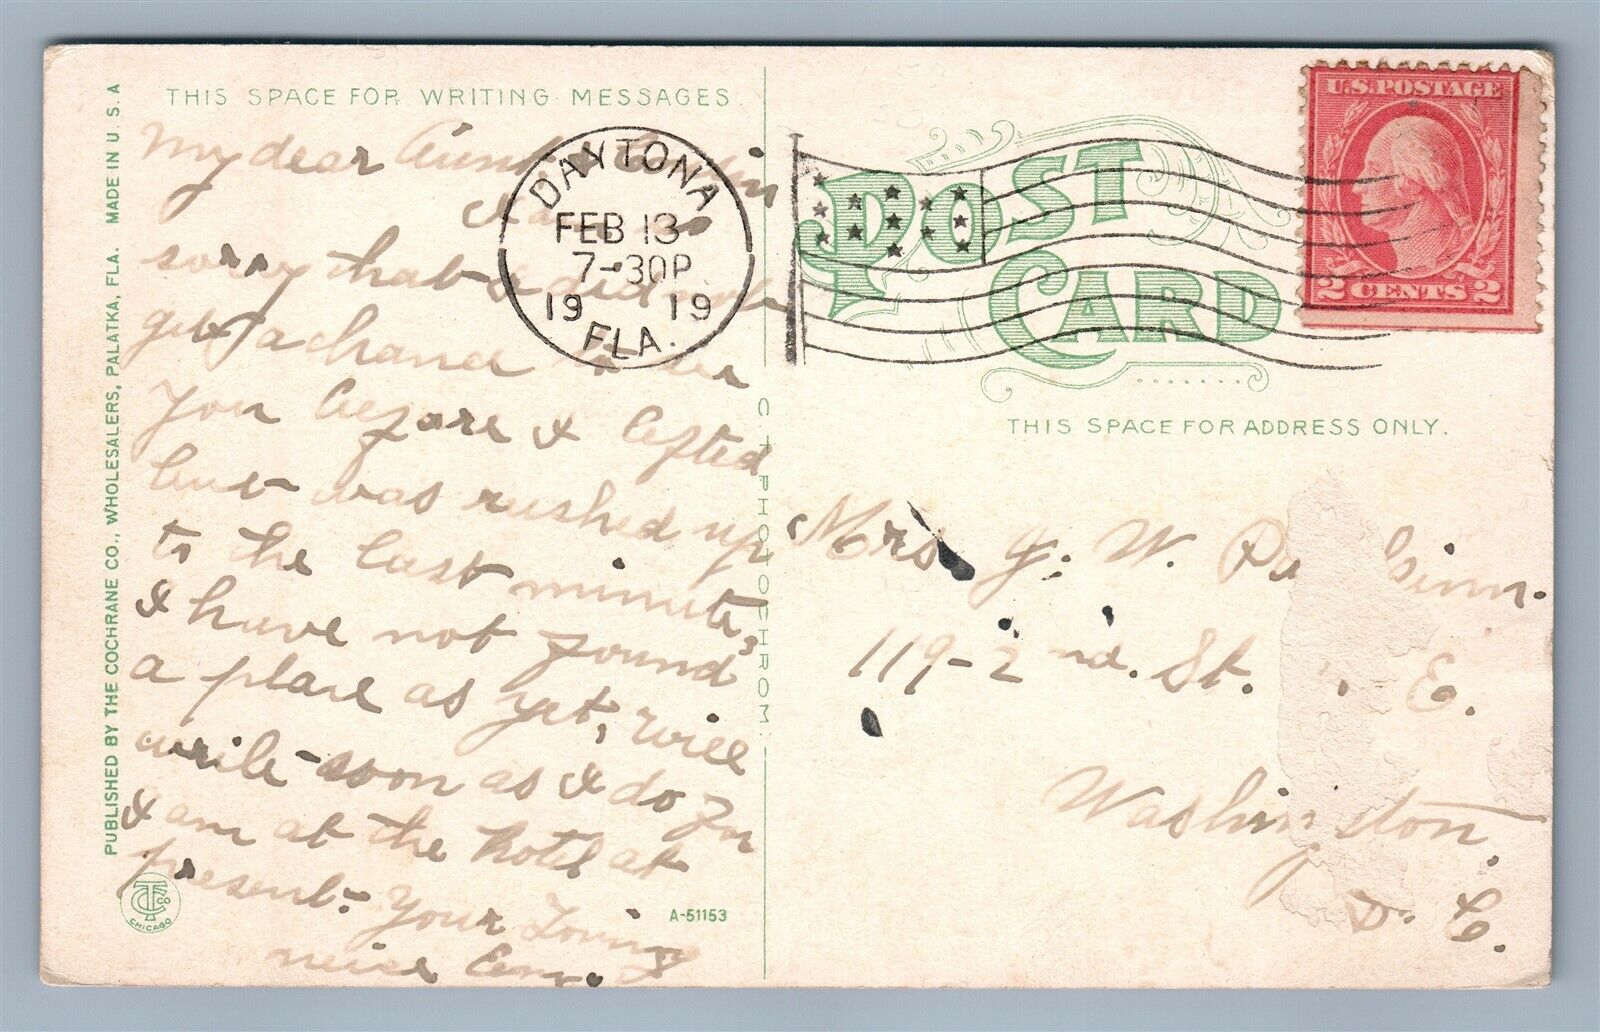 THIS SPACE FOR WRITING MESSAGES.
My dear Aunt
sorry that I did not
get a chance to see
you before I lefted
but was rushed up
to the last minute,
I have not found
a place as yet, will
write soon as I do for
I am at the hotel at
present. Your Loving
neice Em.
PUBLISHED BY THE COCHRANE CO., WHOLESALERS, PALATKA, FLA. MADE IN U.S.A
CTCo
CHICAGO
A-51153
C.T. PHOTOCHROM
DAYTONA
FEB 13
7-30P
19 19
FLA.
POST CARD
U.S. POSTAGE
2 CENTS 2
THIS SPACE FOR ADDRESS ONLY.
Mrs J. W.
119-2nd. St. E.
Washington,
D. C.